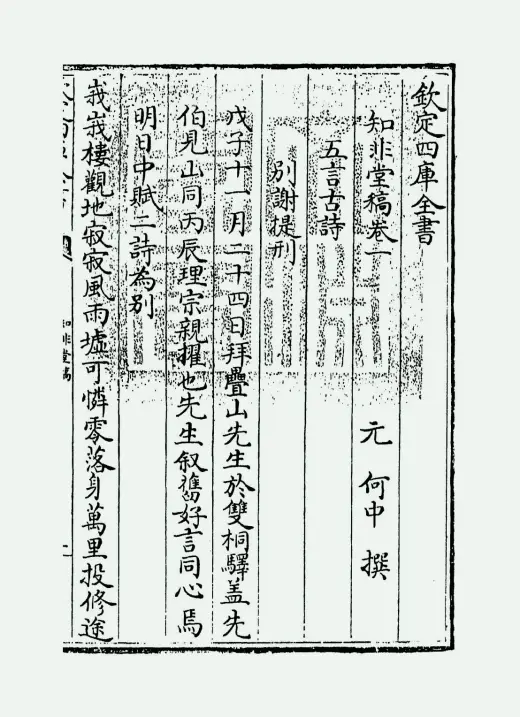 欽定四庫全書
知非堂稿卷一
元 何中 撰
五言古詩
別謝提刑
戊子十一月二十四日拜疊山先生於雙桐驛盖先
伯見山同丙辰理宗親擢也先生叙舊好言同心焉
明日中賦二詩為別
峩峩樓觀地寂寂風雨墟可憐零落身萬里投修途
知非堂稿